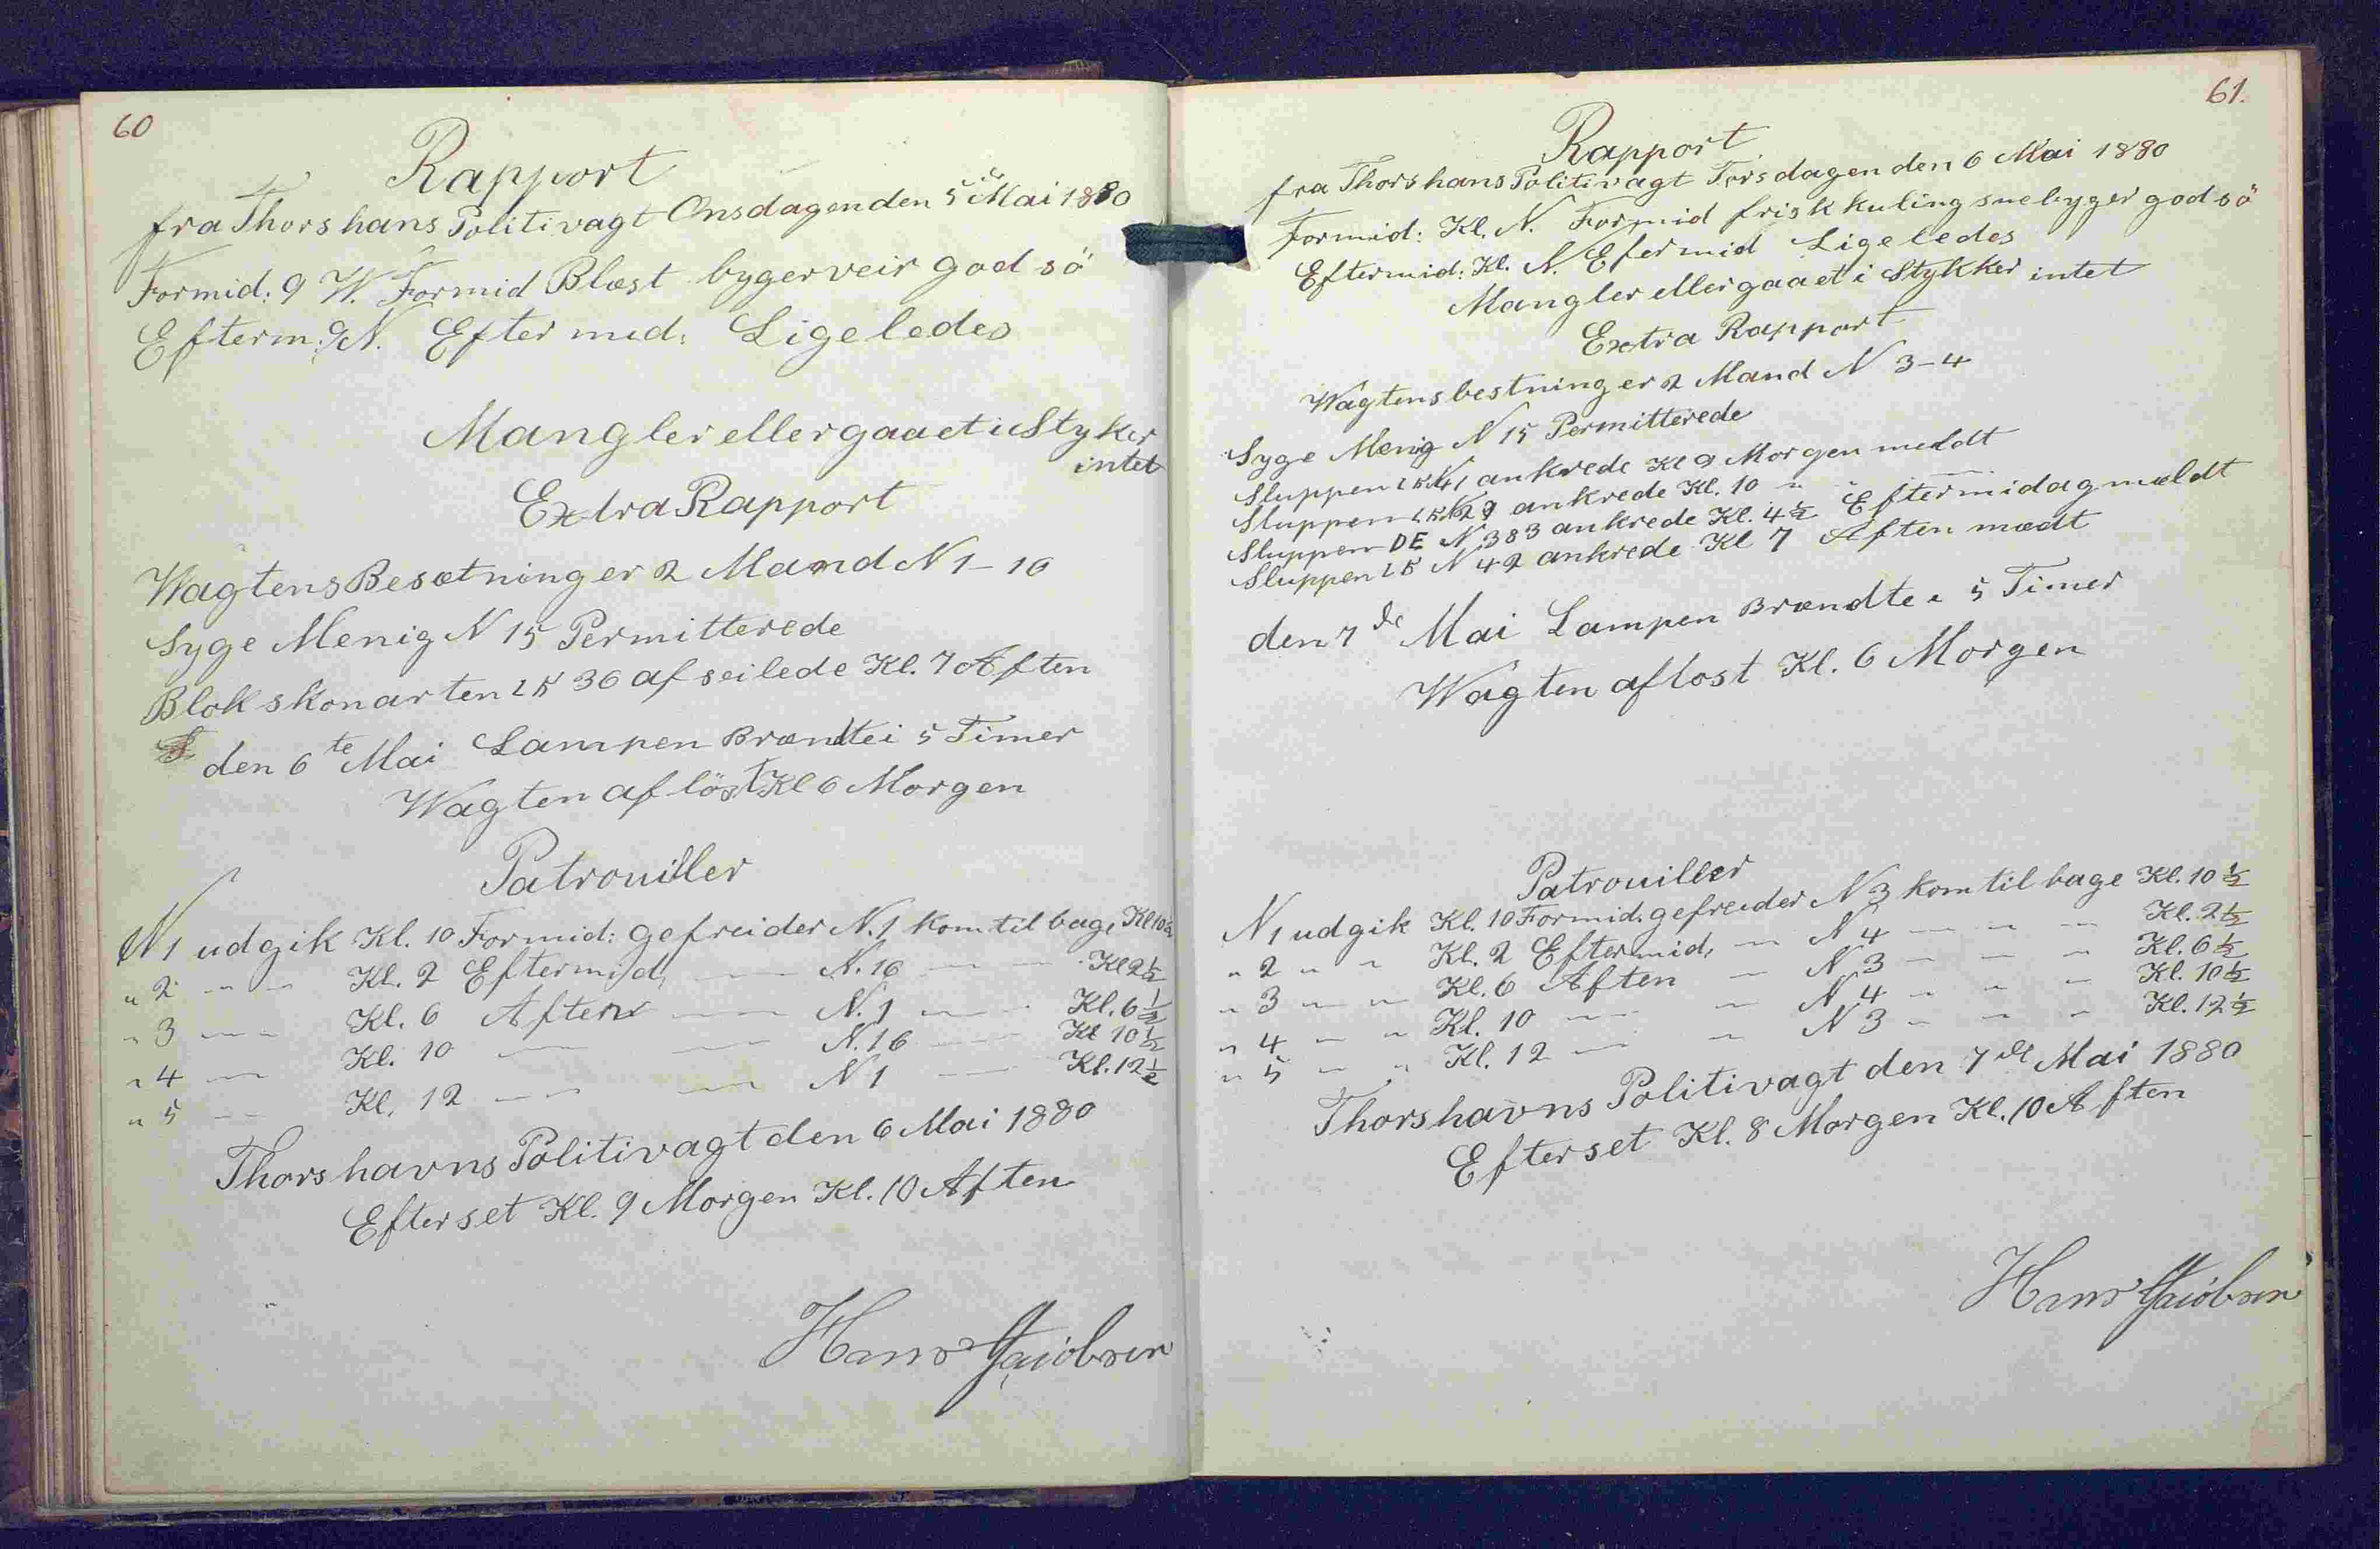 60
Rapport
fra Thorshans Politivagt Onsdagen den 5 Mai 1880
Formid: 9 W. Formid Blæst bygerveir god sö
Efterm: 9 N. Efter mid: Ligeledes
Mangler eller gaaet i Styker
intet
Extra Rapport
Wagtens Besætning er 2 Mand N 1-16
Syge Menig N 15 Permitterede
Blokskonarten LK 36 afseilede Kl. 7 Aften
den 6te Mai Lampen Brændte i 5 Timer
Wagten aflöst Kl 6 Morgen
Patrouiller
N 1 udgik Kl. 10 Formid: gefreider N. 1 kom til bage Kl 10½
" 2 " " Kl. 2 Eftermid, — N. 16 — — Kl 2½
" 3 — — Kl. 6 Aften — N. 1 — — Kl. 6½
" 4 — Kl. 10 — — N. 16 — Kl 10½
" 5 — Kl. 12 — — N 1 — Kl. 12½
Thorshavns Politivagt den 6 Mai 1880
Efterset Kl. 9 Morgen Kl. 10 Aften
Hans Jacobsen
61.
Rapport
fra Thorshans Politivagt Torsdagen den 6 Mai 1880
Formid: Kl. N. Formid frisk kuling snebyger god sö
Eftermid: Kl. N. Efermid Ligeledes
Mangler eller gaaet i Stykker intet
Extra Rapport
Wagtens bestning er 2 Mand N 3-4
Syge Menig N 15 Permitterede
Sluppen LK ankrede Kl 9 Morgen meldt
Sluppen LK ankrede Kl. 10 " "
Sluppen DE N 383 ankrede Kl. 4½ Eftermidag mældt
Sluppen LK N 42 ankrede Kl 7 Aften mædt
den 7de Mai Lampen Brændte i 5 Timer
Wagten aflost Kl. 6 Morgen
Patrouiller
N 1 udgik Kl. 10 Formid: gefreider N 3 kom til bage Kl. 10½
" 2 " " Kl. 2 Eftermid, — N 4 — — — Kl. 2½
" 3 — — Kl. 6 Aften — N 3 — — — Kl. 6½
" 4 — " Kl. 10 — — N 4 — — — Kl. 10½
" 5 — " Kl. 12 — — N 3 — — — Kl. 12½
Thorshavns Politivagt den 7de Mai 1880
Efterset Kl. 8 Morgen Kl. 10 Aften
Hans Jacobsen